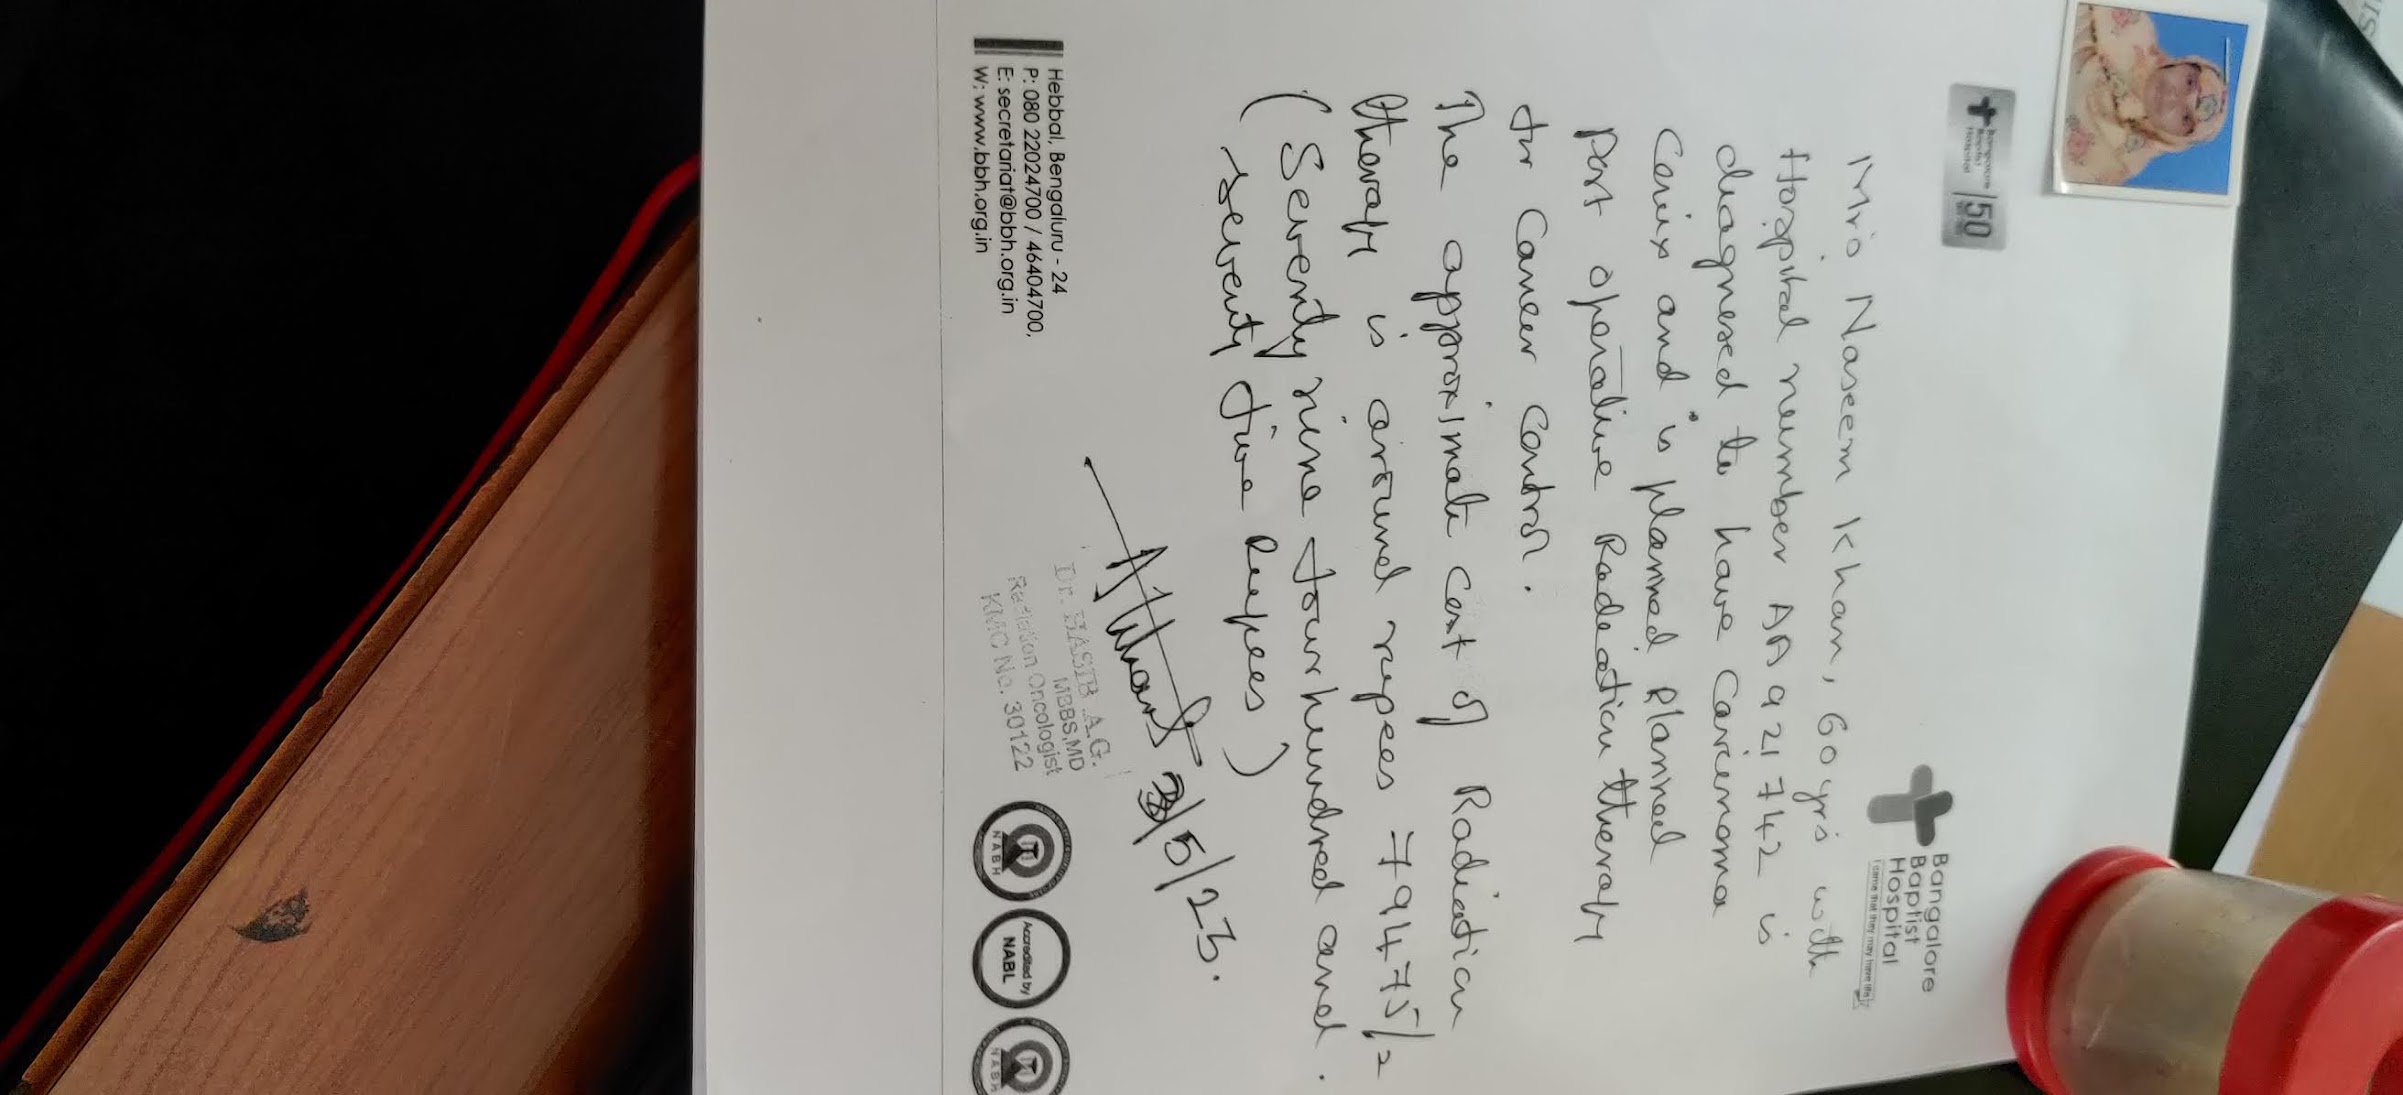 Bangalore
Baptist
Hospital
50
Bangalore
Baptist
Hospital
I came that they may have life
Mrs Naseem Khan, 60yrs with
Hospital number AA 921742 is
diagnesed to have Carcinoma
Cervix and is planned Planned
Post operative Radiation therapy
for Cancer Control.
The approximate cost of Radiation
therapy is around rupees 79475/=
(Seventy nine four hundred and
seventy five Rupees)
3/5/23.
Dr. BASIB A.G.
MBBS,MD
Radiation Oncologist
KMC No. 30122
Hebbal, Bengaluru - 24
P: 080 22024700 / 46404700,
E: secretariat@bbh.org.in
W: www.bbh.org.in
NABH
Accredited by
NABL
NABH